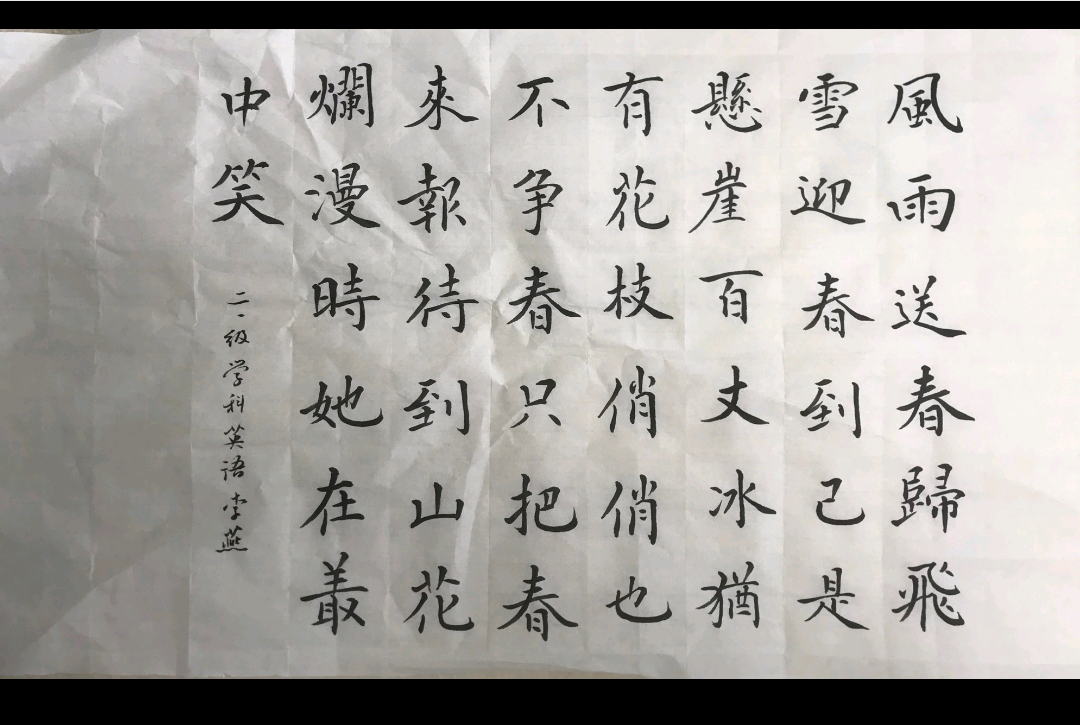 風雨送春歸飛
雪迎春到己是
懸崖百丈冰猶
有花枝俏俏也
不争春只把春
來報待到山花
爛漫時她在叢
中笑
二一级学科英语李燕